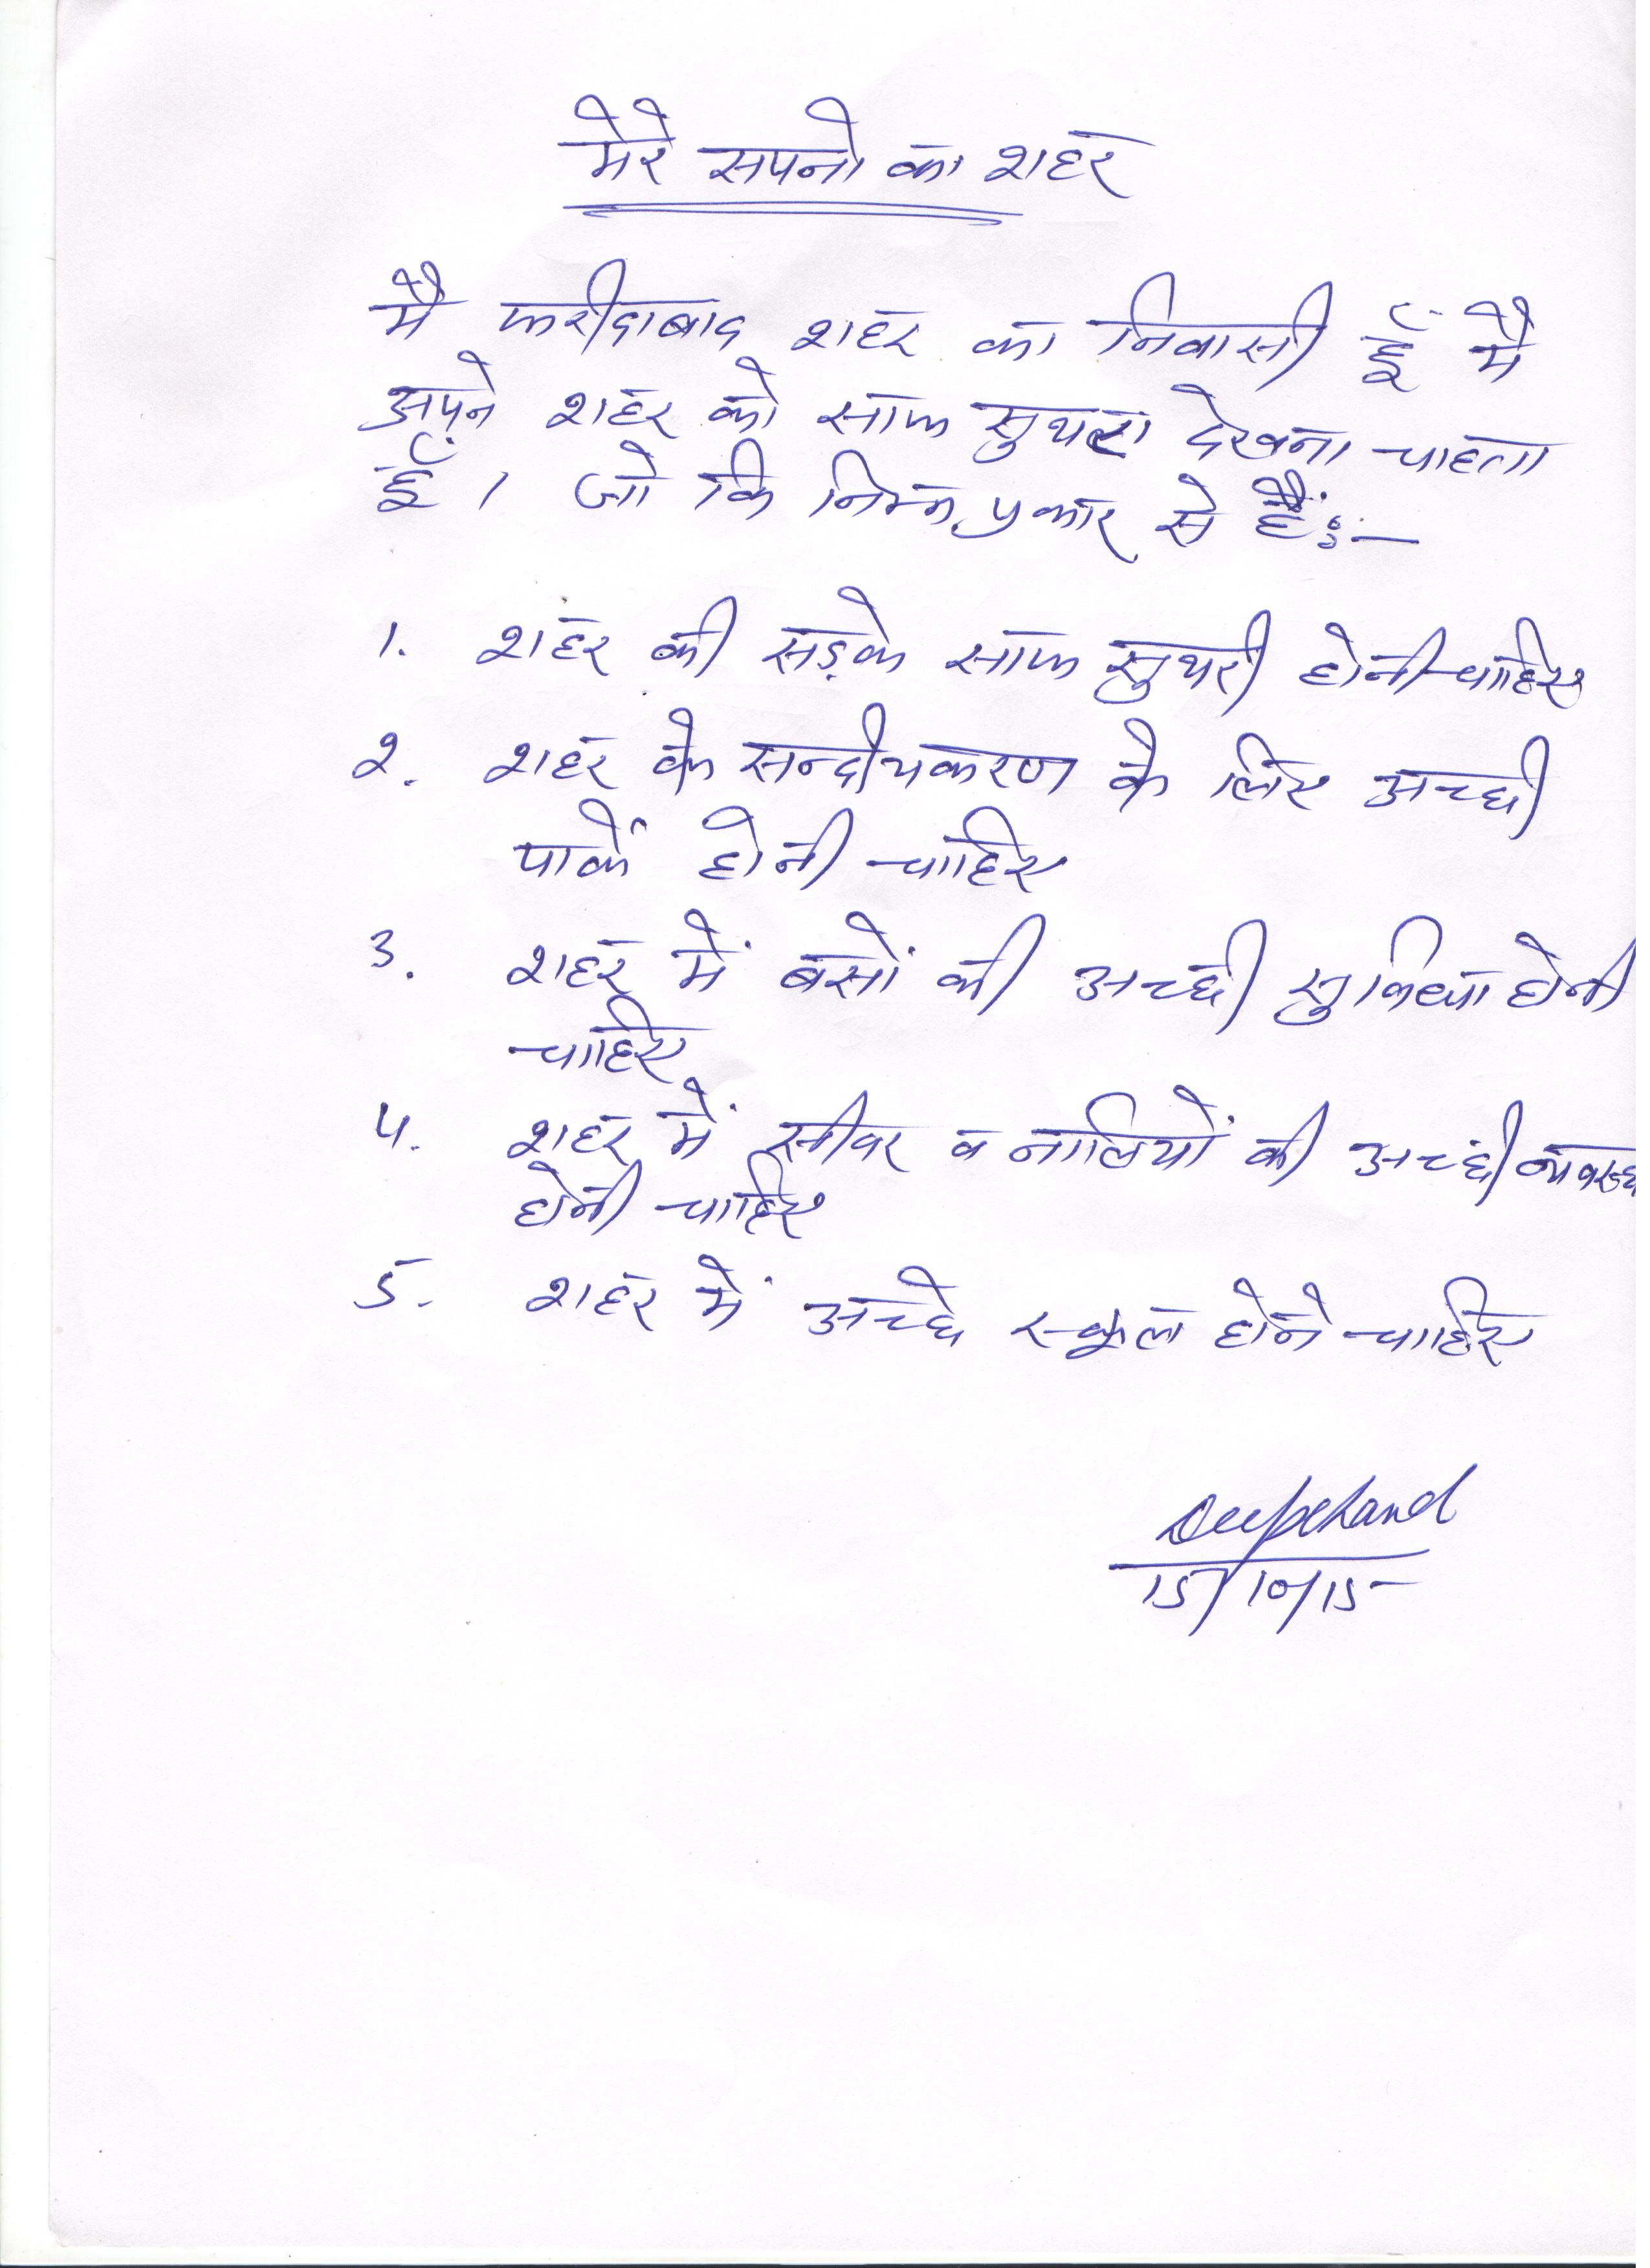 मेरे सपनो का शहर
मै फरीदाबाद शहर का निवासी हूँ मै
अपने शहर को साफ सुथरा देखना चाहता
हूँ । जो कि निम्न प्रकार से हैं:-
1. शहर की सड़के साफ सुथरी होनी चाहिए
2. शहर के सन्दीयकरण के लिए अच्छी
पार्के होनी चाहिए
3. शहर में बसों की अच्छी सुविधा होनी
चाहिए
4. शहर में सीवर व नालियों की अच्छी व्यवस्था
होनी चाहिए
5. शहर में अच्छे स्कूल होने चाहिए
Deepchand
15/10/15